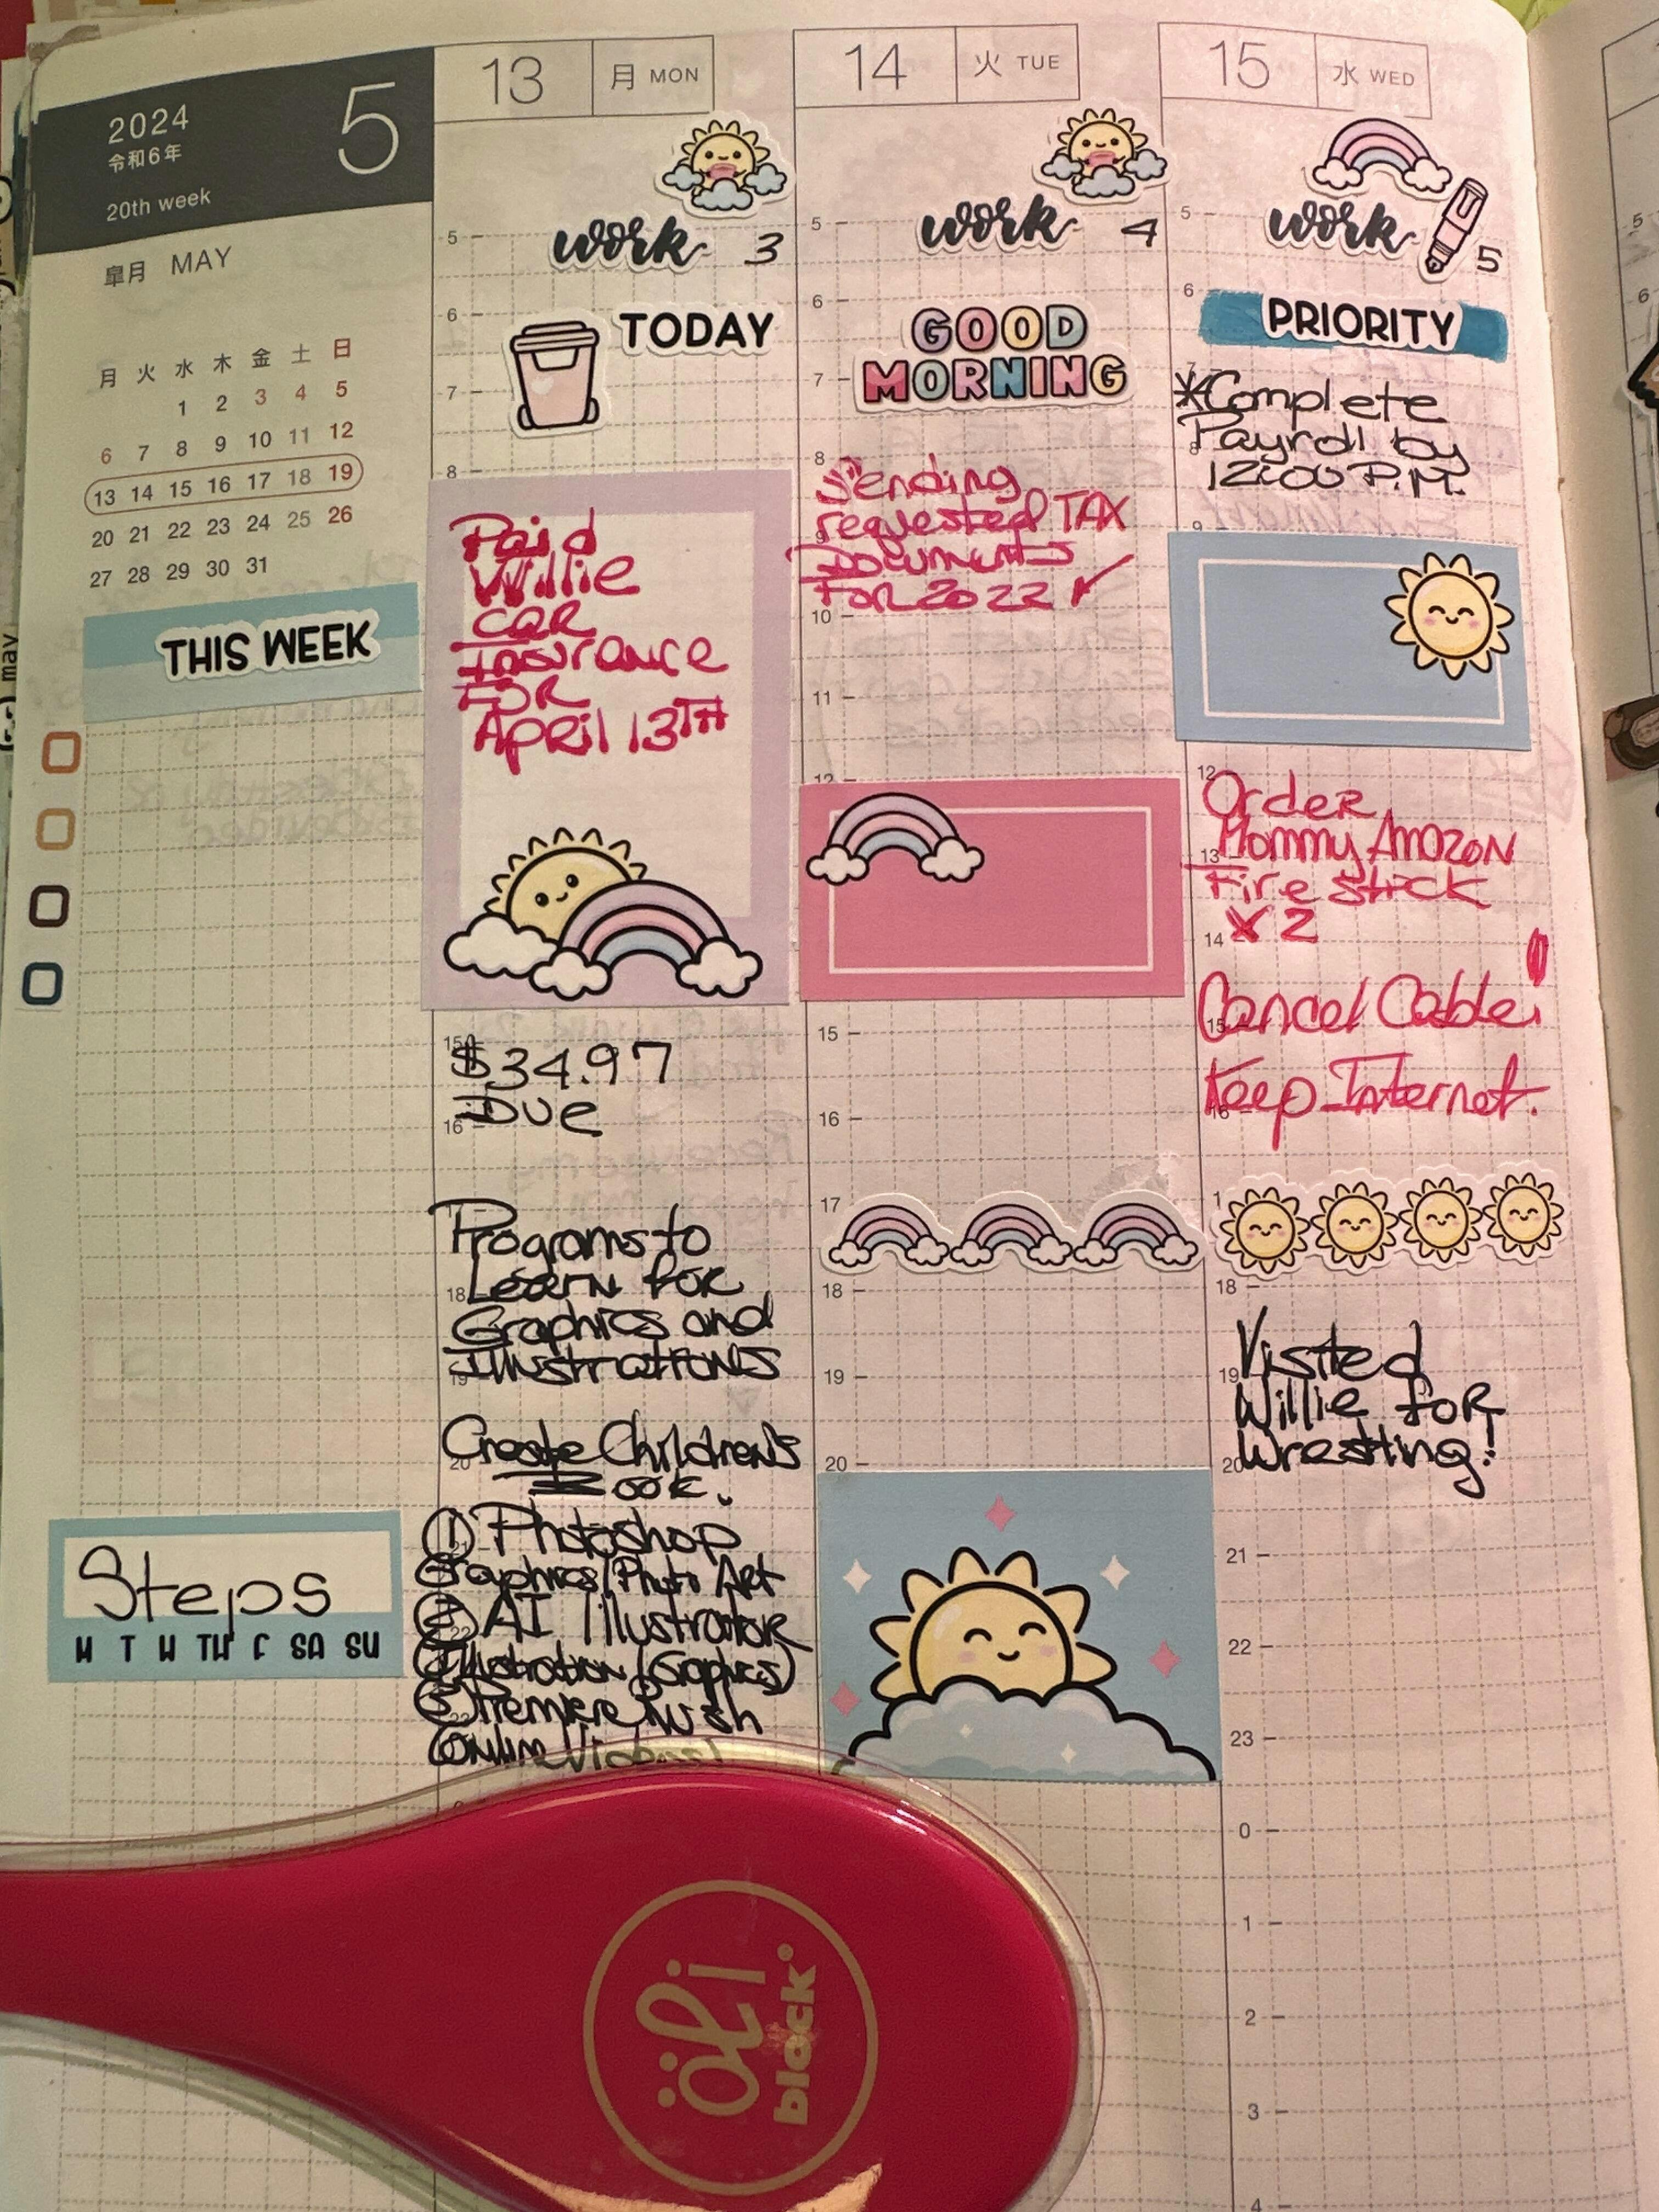 2024
令和6年
5
20th week
皐月 MAY
月 火 水 木 金 土 日
1 2 3 4 5
6 7 8 9 10 11 12
13 14 15 16 17 18 19
20 21 22 23 24 25 26
27 28 29 30 31
THIS WEEK
Steps
M T W TH F SA SU
13 月 MON
work 3
5
6
TODAY
7
8
Paid
Willie
CAR
Insurance
FOR
April 13TH
15
$34.97
16
Due
Programs to
18
Learn for
Graphics and
19
Illustrations
Create Children's
20
Book.
① Photoshop
Graphics/Photo Art
② AI Illustrator
Illustration (Graphics)
③ Premiere Rush
Online Videos!
14 火 TUE
5
work 4
6
GOOD
7
MORNING
8
Sending
requested TAX
9
Documents
FOR 2022 ✓
10
11
12
15
16
17
18
19
20
15 水 WED
5
work 5
6
PRIORITY
7
*Complete
Payroll by
8
12:00 P.M.
9
12
Order
Mommy Amazon
13
Fire stick
X 2
14
Cancel Cable!
15
Keep Internet.
16
18
Visited
19
Willie for
20
Wrestling!
21
22
23
0
1
2
3
4
5
6
may
öli
block